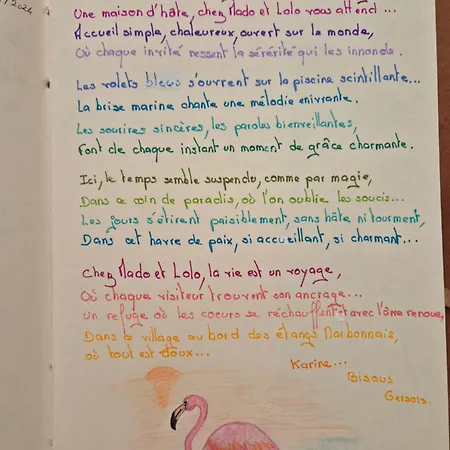 /2024
Une maison d'hâte, chez Mado et Lolo vous attend...
Accueil simple, chaleureux, ouvert sur la monde,
Où chaque invité ressent la sérérité qui les innonde.
Les volets bleus s'ouvrent sur la piscine scintillante...
La brise marine chante une mélodie enivrante.
Les sourires sincères, les paroles bienveillantes,
Font de chaque instant un moment de grâce charmante.
Ici, le temps semble suspendu, comme par magie,
Dans ce coin de paradis, où l'on oublie les soucis...
Les jours s'étirent paisiblement, sans hâte ni tourment,
Dans cet havre de paix, si accueillant, si charmant...
Chez Mado et Lolo, la vie est un voyage,
Où chaque visiteur trouvent son ancrage...
un refuge où les coeurs se réchauffent avec l'âme renoue,
Dans ce village au bord des étangs Narbonnais,
où tout est doux...
Karine...
Bisous